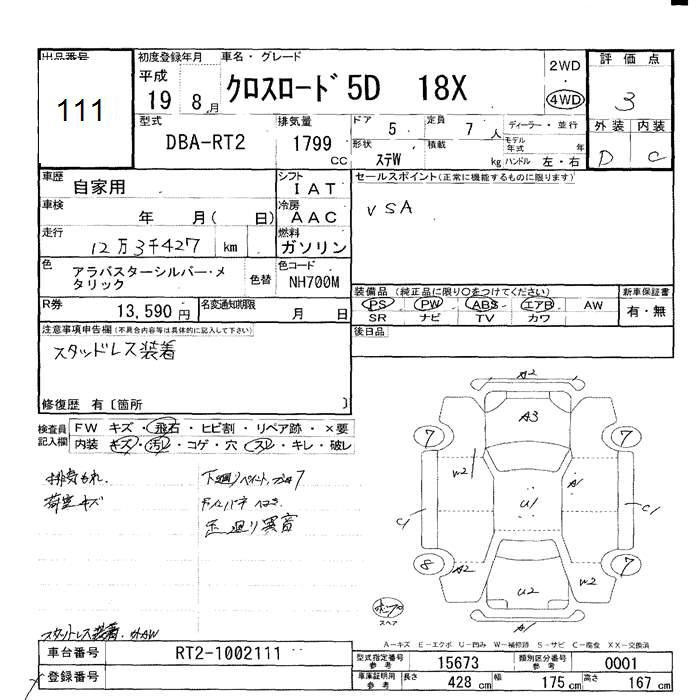 出品番号
111
初度登録年月
平成
19 8月
車名・グレード
クロスロード 5D 18X
2WD
4WD
評価点
3
外装 内装
D C
型式
DBA-RT2
排気量
1799
CC
ドア
5
定員
7 人
形状
ステW
積載
kg
ディーラー・並行
モデル年式 年
ハンドル 左・右
車歴
自家用
シフト
IAT
車検
年 月( 日)
冷房
AAC
走行
12万3千427 km
燃料
ガソリン
色
アラバスターシルバー・メタリック
色替
色コード
NH700M
R券
13,590円
名変通知期限
月 日
セールスポイント(正常に機能するものに限ります)
VSA
装備品(純正品に限り〇をつけてください)
PS PW ABS エアB AW
SR ナビ TV カワ
新車保証書
有・無
後日品
注意事項申告欄(不具合内容等は具体的に記入して下さい)
スタッドレス装着
修復歴 有〔箇所 〕
検査員記入欄
FW キズ・飛石・ヒビ割・リペア跡・×要
内装 キズ・汚レ・コゲ・穴・スレ・キレ・破レ
荷室キズ
足廻り異音
スタッドレス装着、社外AW
A2
A3
7
7
W2
A1
U1
C1
C1
8
7
A2
W2
U2
A1
スペア
A－キズ E－エクボ U－凹み W－補修跡 S－サビ C－腐食 XX－交換済
車台番号
RT2-1002111
登録番号
型式指定番号 参考
15673
類別区分番号 参考
0001
車庫証明用 参考
長さ 428 cm
幅 175 cm
高さ 167 cm